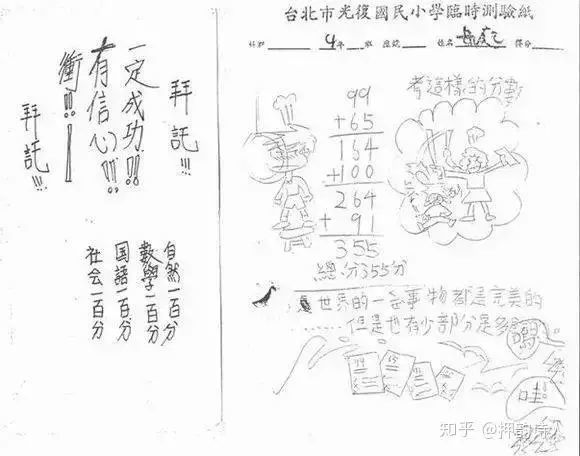 拜託!!!
一定成功!!
有信心!!!
衝!!!
拜託!!!
自然一百分
數學一百分
国語一百分
社会一百分
台北市光復國民小學臨時測驗紙
科別 4年 班 座號 姓名 得分
考這樣的分數
99
+65
164
+100
264
+ 91
355
總分355分
世界的一些事物都是完美的
……但是也有少部分是
哇!
知乎 @押韵